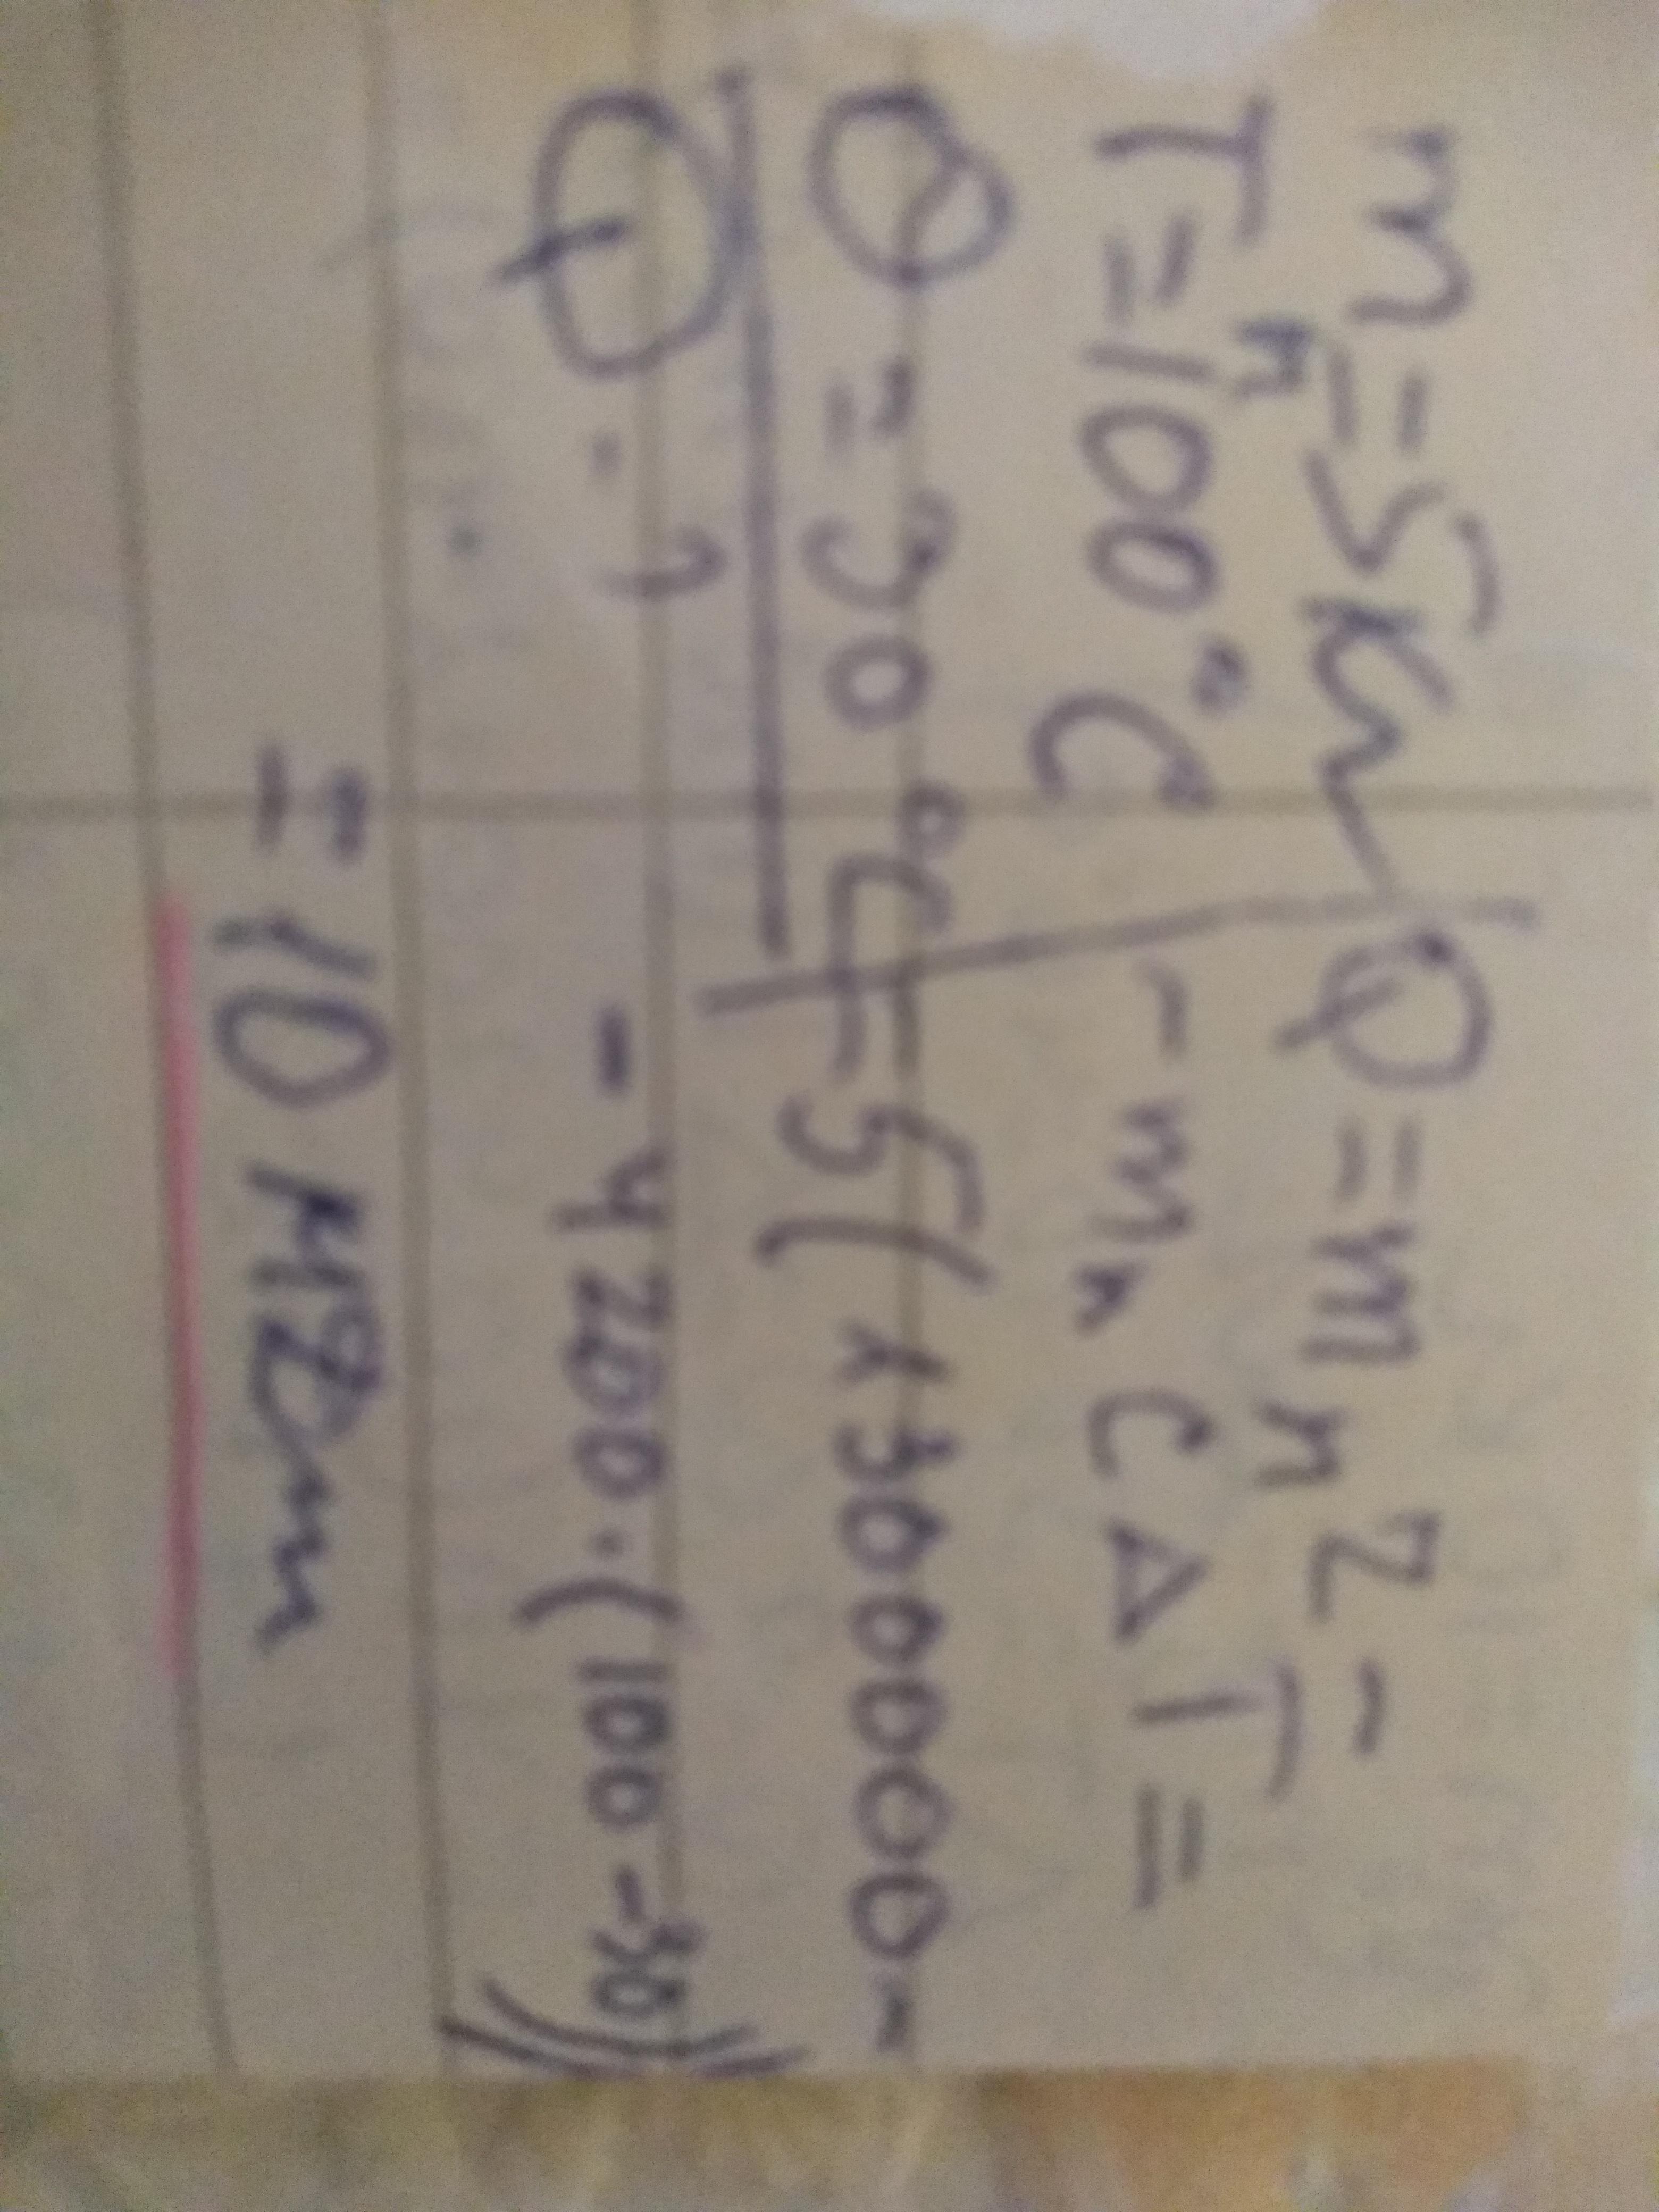 m = 5 кг
Tп = 100 °C
Θ = 30 °C
Q - ?
Q = mп Z -
- mп C Δ T =
= 5 ( 2300000 -
- 4200 · (100 - 30))
= 10 МДж